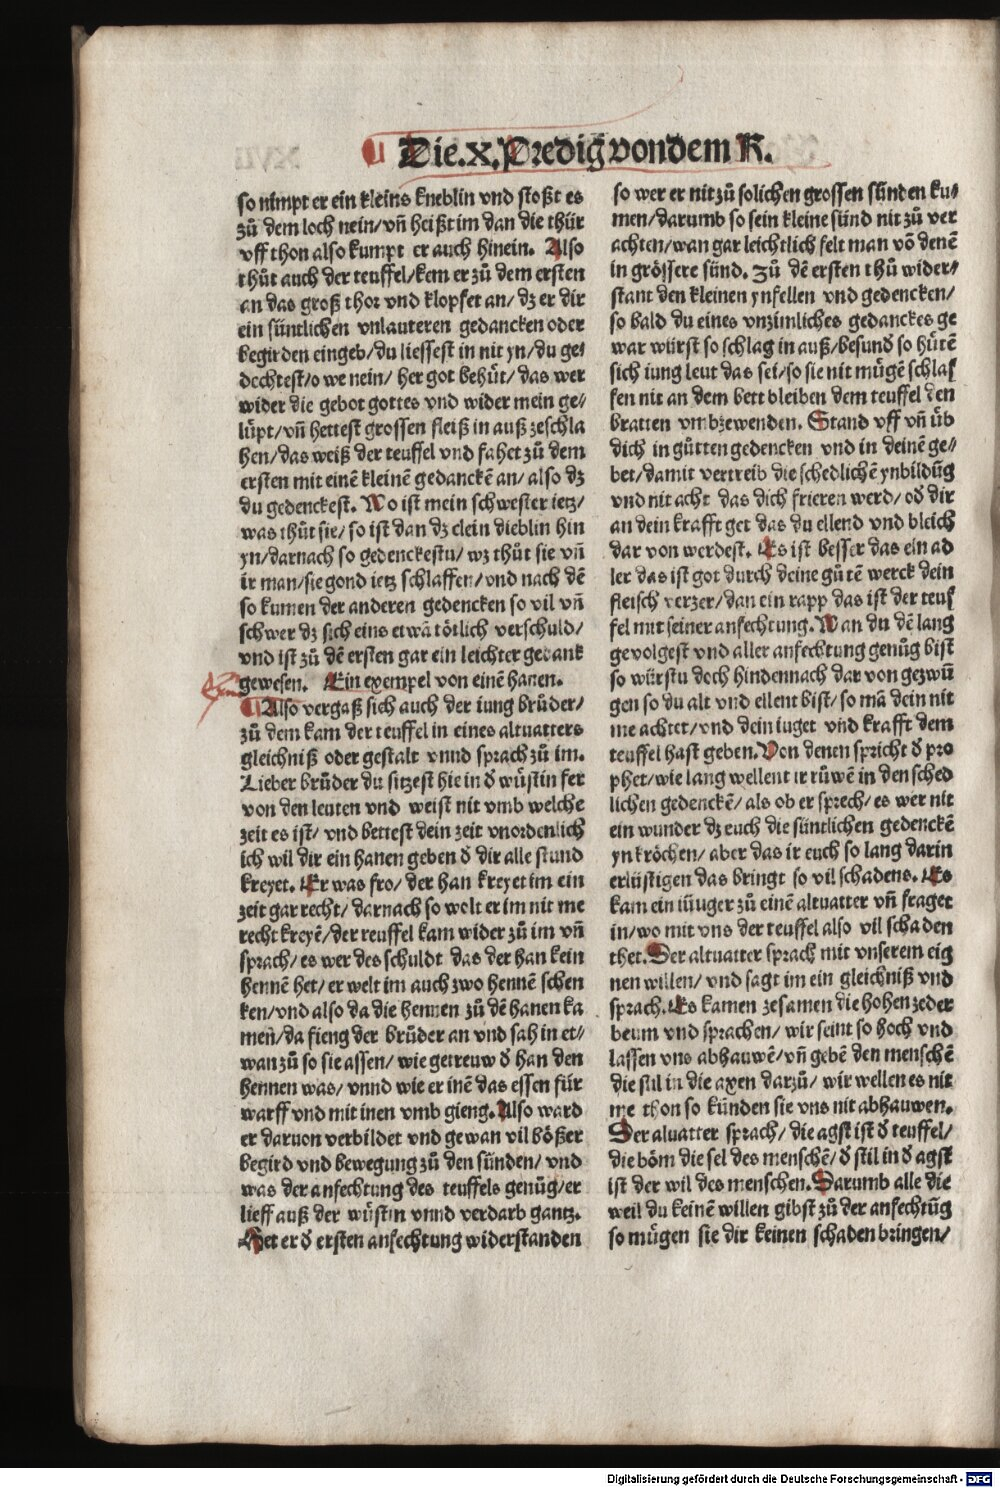 Die.x.Predig vondem R.
so nimpt er ein kleins kneblin vnd stoßt es
zů dem loch nein/vñ heißt im dan die thür
vff thon also kumpt er auch hinein. Also
thůt auch der teuffel/kem er zů dem ersten
an das groß thor vnd klopfet an/dz er dir
ein süntlichen vnlauteren gedancken oder
begirden eingeb/du liessest in nit yn/du ge⸗
dechtest/o we nein/her got behüt/das wer
wider die gebot gottes vnd wider mein ge⸗
lüpt/vñ hettest grossen fleiß in auß zeschla
hen/das weiß der teuffel vnd fahet zů dem
ersten mit einē kleinē gedanckē an/also dz
du gedenckest. Wo ist mein schwester ietz/
was thůt sie/so ist dan dz clein dieblin hin
yn/darnach so gedenckestu/wz thůt sie vñ
ir man/sie gond ietz schlaffen/vnd nach dē
so kumen der anderen gedencken so vil vñ
schwer dz sich eins etwā tötlich verschuld/
vnd ist zů dē ersten gar ein leichter gedank
gewesen. Ein exempel von einē hanen.
Also vergaß sich auch der iung brůder/
zů dem kam der teuffel in eines altuatters
gleichniß oder gestalt vnnd sprach zů im.
Lieber brůder du sitzest hie in d̕ wüstin fer
von den leuten vnd weist nit vmb welche
zeit es ist/vnd bettest dein zeit vnordenlich
ich wil dir ein hanen geben d̕ dir alle stund
kreyet. Er was fro/der han kreyet im ein
zeit gar recht/darnach so wolt er im nit me
recht kreyē/der reuffel kam wider zů im vñ
sprach/es wer des schuldt das der han kein
hennē het/er welt im auch zwo hennē schen
ken/vnd also da die hennen zů dē hanen ka
men/da fieng der brůder an vnd sah in et⸗
wan zů so sie assen/wie getreuw d̕ han den
hennen was/vnnd wie er inē das essen für
warff vnd mit inen vmb gieng. Also ward
er daruon verbildet vnd gewan vil bößer
begird vnd bewegung zů den sünden/vnd
was der anfechtung des teuffels genůg/er
lieff auß der wüstin vnnd verdarb gantz.
Het er d̕ ersten anfechtung widerstanden
so wer er nit zů solichen grossen sünden ku⸗
men/darumb so sein kleine sünd nit zů ver
achten/wan gar leichtlich felt man vō denē
in grössere sünd. Zů dē ersten thů wider⸗
stant den kleinen ynfellen vnd gedencken/
so bald du eines vnzimliches gedanckes ge
war würst so schlag in auß/besund̕ so hütē
sich iung leut das sei/so sie nit mügē schlaf
fen nit an dem bett bleiben dem teuffel den
bratten vmbzewenden. Stand vff vñ üb
dich in gůtten gedencken vnd in deinē ge⸗
bet/damit vertreib die schedlichē ynbildūg
vnd nit acht das dich frieren werd/od̕ dir
an dein krafft get das du ellend vnd bleich
dar von werdest. Es ist besser das ein ad
ler das ist got durch deine gůtē werck dein
fleisch verzer/dan ein rapp das ist der teuf
fel mit seiner anfechtung. Wan du dē lang
gevolgest vnd aller anfechtung genůg bist
so würstu doch hindennach dar von gezwū
gen so du alt vnd ellent bist/so mā dein nit
me achtet/vnd dein iuget vnd krafft dem
teuffel hast geben. Von denen spricht d̕ pro
phet/wie lang wellent ir růwē in den sched
lichen gedenckē/als ob er sprech/es wer nit
ein wunder dz euch die süntlichen gedenckē
yn kröchen/aber das ir euch so lang darin
erlüstigen das bringt so vil schadens. Es
kam ein iüuger zů einē altuatter vñ fraget
in/wo mit vns der teuffel also vil schaden
thet. Der altuatter sprach mit vnserem eig
nen willen/vnd sagt im ein gleichniß vnd
sprach. Es kamen zesamen die hohen zeder
beum vnd sprachen/wir seint so hoch vnd
lassen vns abhauwē/vñ gebē den menschē
die stil in die axen darzů/wir wellen es nit
me thon so künden sie vns nit abhauwen.
Der aluatter sprach/die agst ist d̕ teuffel/
die böm die sel des menschē/d̕ stil in d̕ agst
ist der wil des menschen. Darumb alle die
weil du keinē willen gibst zů der anfechtūg
so mügen sie dir keinen schaden bringen/
Digitalisierung gefördert durch die Deutsche Forschungsgemeinschaft - DFG